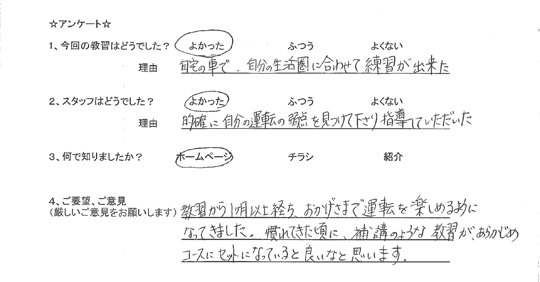 ☆アンケート☆
1、今回の教習はどうでした？ よかった ふつう よくない
理由 自宅の車で、自分の生活圏に合わせて練習が出来た
2、スタッフはどうでした？ よかった ふつう よくない
理由 的確に自分の運転の弱点を見つけて下さり指導していただいた
3、何で知りましたか？ ホームページ チラシ 紹介
4、ご要望、ご意見
(厳しいご意見をお願いします)
教習から1ヶ月以上経ち、おかげさまで運転を楽しめるように
なってきました。慣れてきた頃に、補講のような教習が、あらかじめ
コースにセットになっていると良いなと思います。